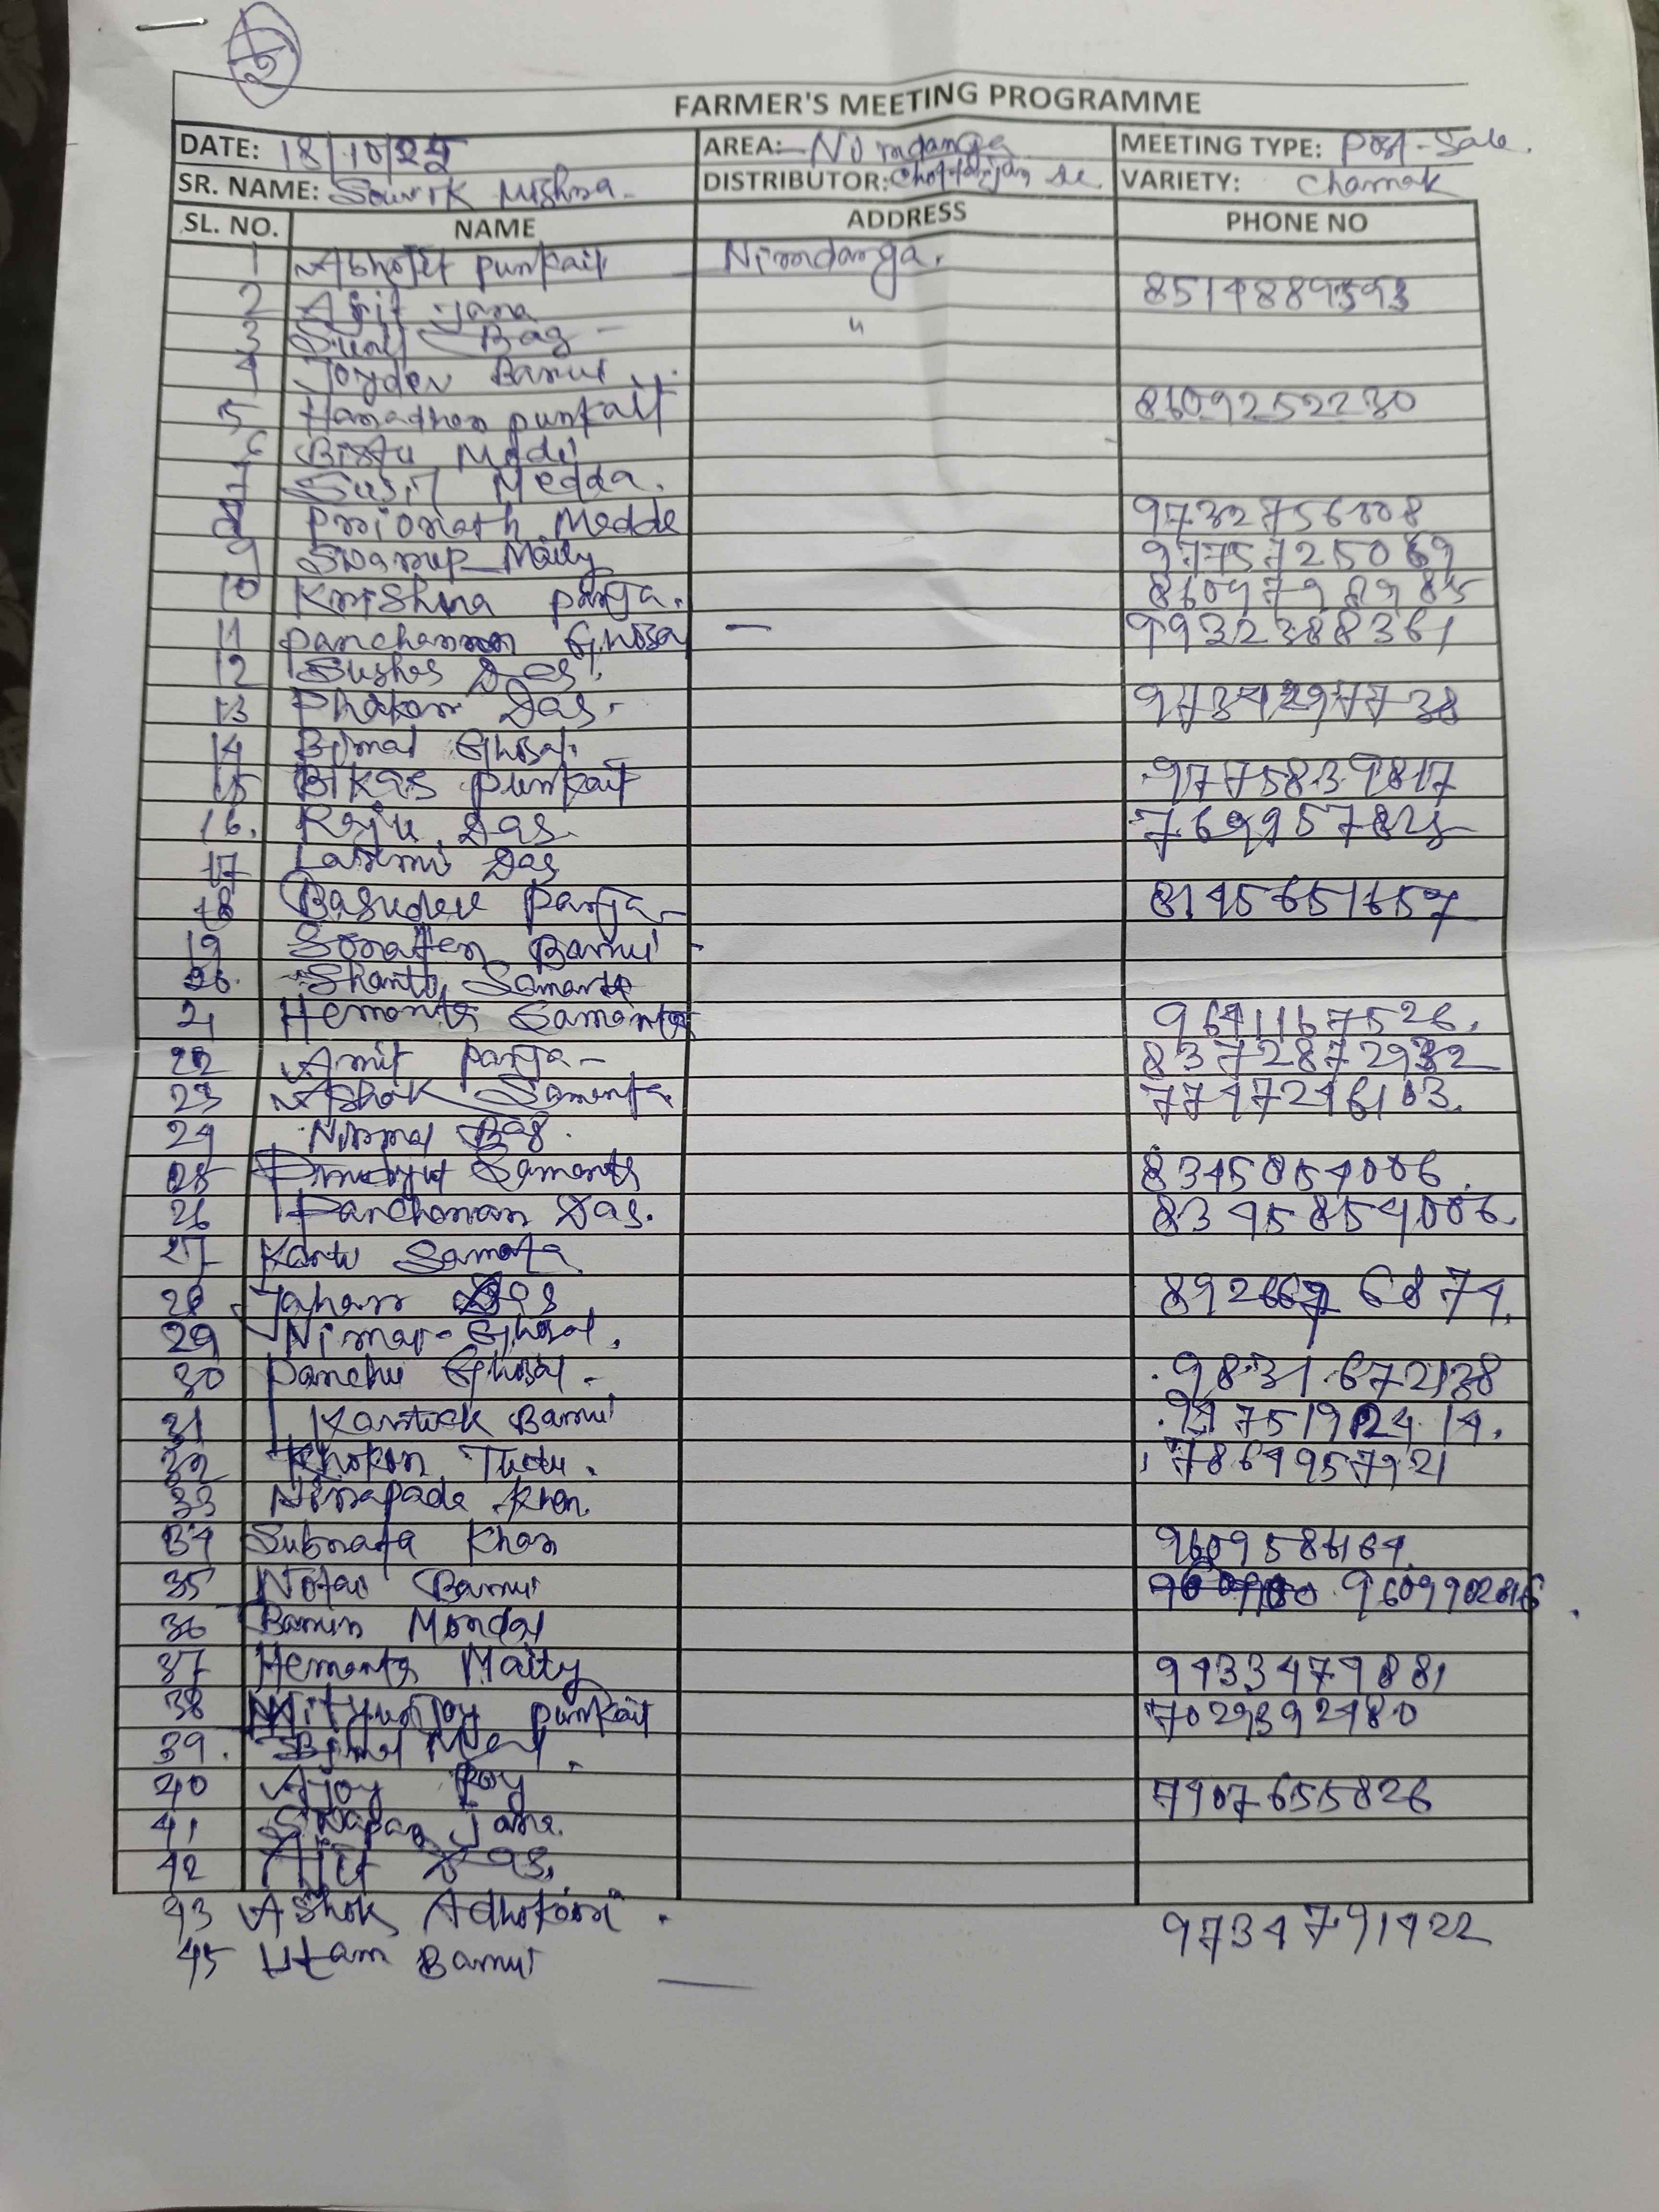 FARMER'S MEETING PROGRAMME
DATE: 18/10/25 AREA:- Nimdanga MEETING TYPE: Post-Sale.
SR. NAME: Souvik Mishra. DISTRIBUTOR: De. VARIETY: Chamak
SL. NO. NAME ADDRESS PHONE NO
1 Abhojit punkait Nimdanga.
2 Ajit jana 8514889393
3 Sunil Bag - "
4 Joydev Barui
5 Haradhon punkait 8609252230
6 Bistu
7 Susil Medda.
8 Prionath Medde 9732756008
9 Swarup Maity 9775725069
10 Krishna panja. 8609798985
11 panchanan Ghosal - 9932388361
12 Sushes Das.
13 Das. 9734297738
14 Bimal Ghosal.
15 Bikas Punkait 9775839817
16. Raju Das.
17 Laxmi Das
18 Basudev Panja 8145651657
19 Sonaten Barui
20. Shanti Samanta
21 Hemanta Samanta 9641167526.
22 Amit panja - 8372872932
23 Ashok Samanta. 7747246103.
24 Nirmal Bag.
25 Samanta 8345854006.
26 Panchanan Das. 8345854006.
27 Samata
28 Das 8926676874.
29 Nimai Ghosal.
30 Panchu Ghosal - 9831672138
31 Kartick Barui
32 Khokon Tudu. 7864957921
33 Nirapada Khan.
34 Subrata Khan 9609586164.
35 Notai Barui
36 Barun Mondal
37 Hemanta Maity 9433479881
38 Mityunjoy punkait 7029392480
39.
40 Ajoy Roy 7407655826
41 Swapan jana.
42 Ajit Das.
43 Ashok Adhokari. 9734791422
45 Utam Barui